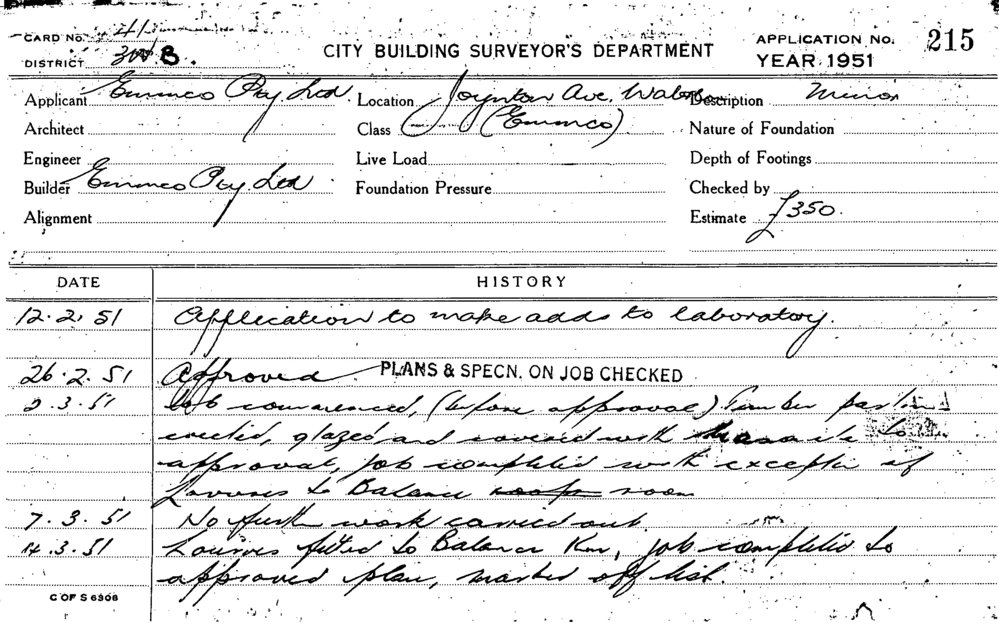 CARD No. 41
DISTRICT 3W B.
CITY BUILDING SURVEYOR'S DEPARTMENT
APPLICATION No. 215
YEAR 1951
Applicant Emmco Pty Ltd. Location Joynton Ave. Description Minor
Architect Class (Emmco) Nature of Foundation
Engineer Live Load Depth of Footings
Builder Emmco Pty Ltd Foundation Pressure Checked by
Alignment Estimate £350.
DATE HISTORY
12.2.51 Application to make adds to laboratory.
26.2.51 Approved. PLANS & SPECN. ON JOB CHECKED
2.3.51 Job commenced, (before approval) Timber
erected, glazed and covered with to
approval, job completed with of
Louvres to Balance room
7.3.51 No furth work carried out.
14.3.51 Louvres fitted to Balance Rm, job completed to
approved plan, marked off list.
C OF S 6306